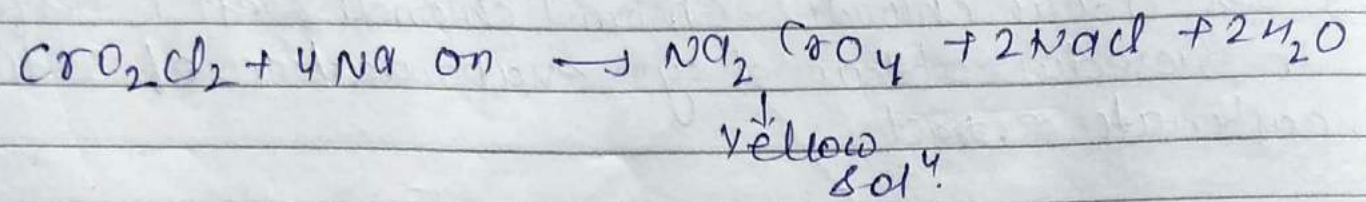 CrO₂Cl₂ + 4NaOH → Na₂CrO₄ + 2NaCl + 2H₂O
↓
Yellow
solⁿ.